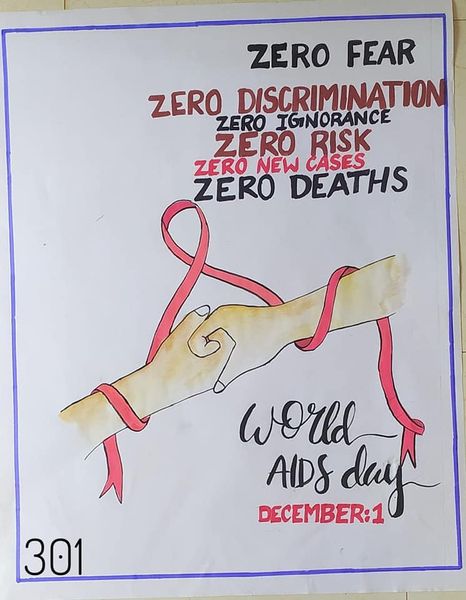 ZERO FEAR
ZERO DISCRIMINATION
ZERO IGNORANCE
ZERO RISK
ZERO NEW CASES
ZERO DEATHS
World
AIDS day
DECEMBER:1
301